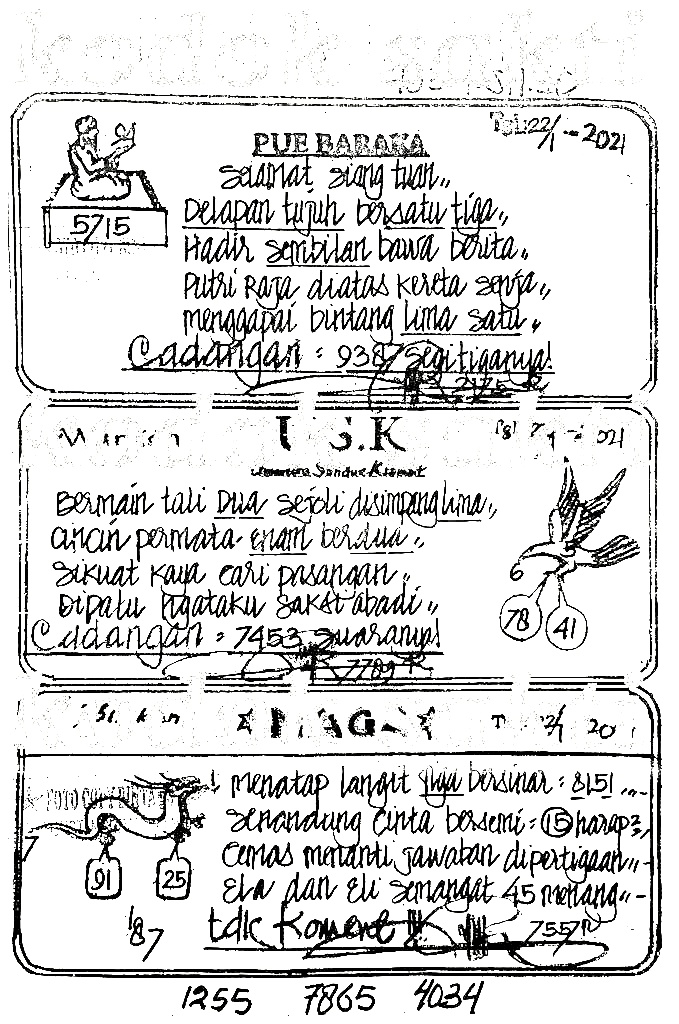 kodok sakti
PUE BARAKA
Tgl:22/1-2021
5715
Selamat siang tuan,,
Delapan tujuh bersatu tiga,,
Hadir sembilan bawa berita,,
Putri Raja diatas Kereta senja,,
menggapai bintang lima satu,,
Cadangan : 9387 segitiganya!
U.S.K
Bermain tali Dua sejoli disimpang lima,,
Cincin permata enam berdua,,
Sikuat Kaya cari pasangan,,
Dipalu ngataku saksi abadi,,
Cadangan : 7453 suaranya!
7789
6
78
41
menatap langit juga bersinar : 8151
Senandung Cinta bersemi : 15 harap²,,
Cemas menanti jawaban dipertigaan,,-
Ela dan Eli semangat 45 menang,,-
91
25
7
187
tdk Koment !!
1255 7865 4034